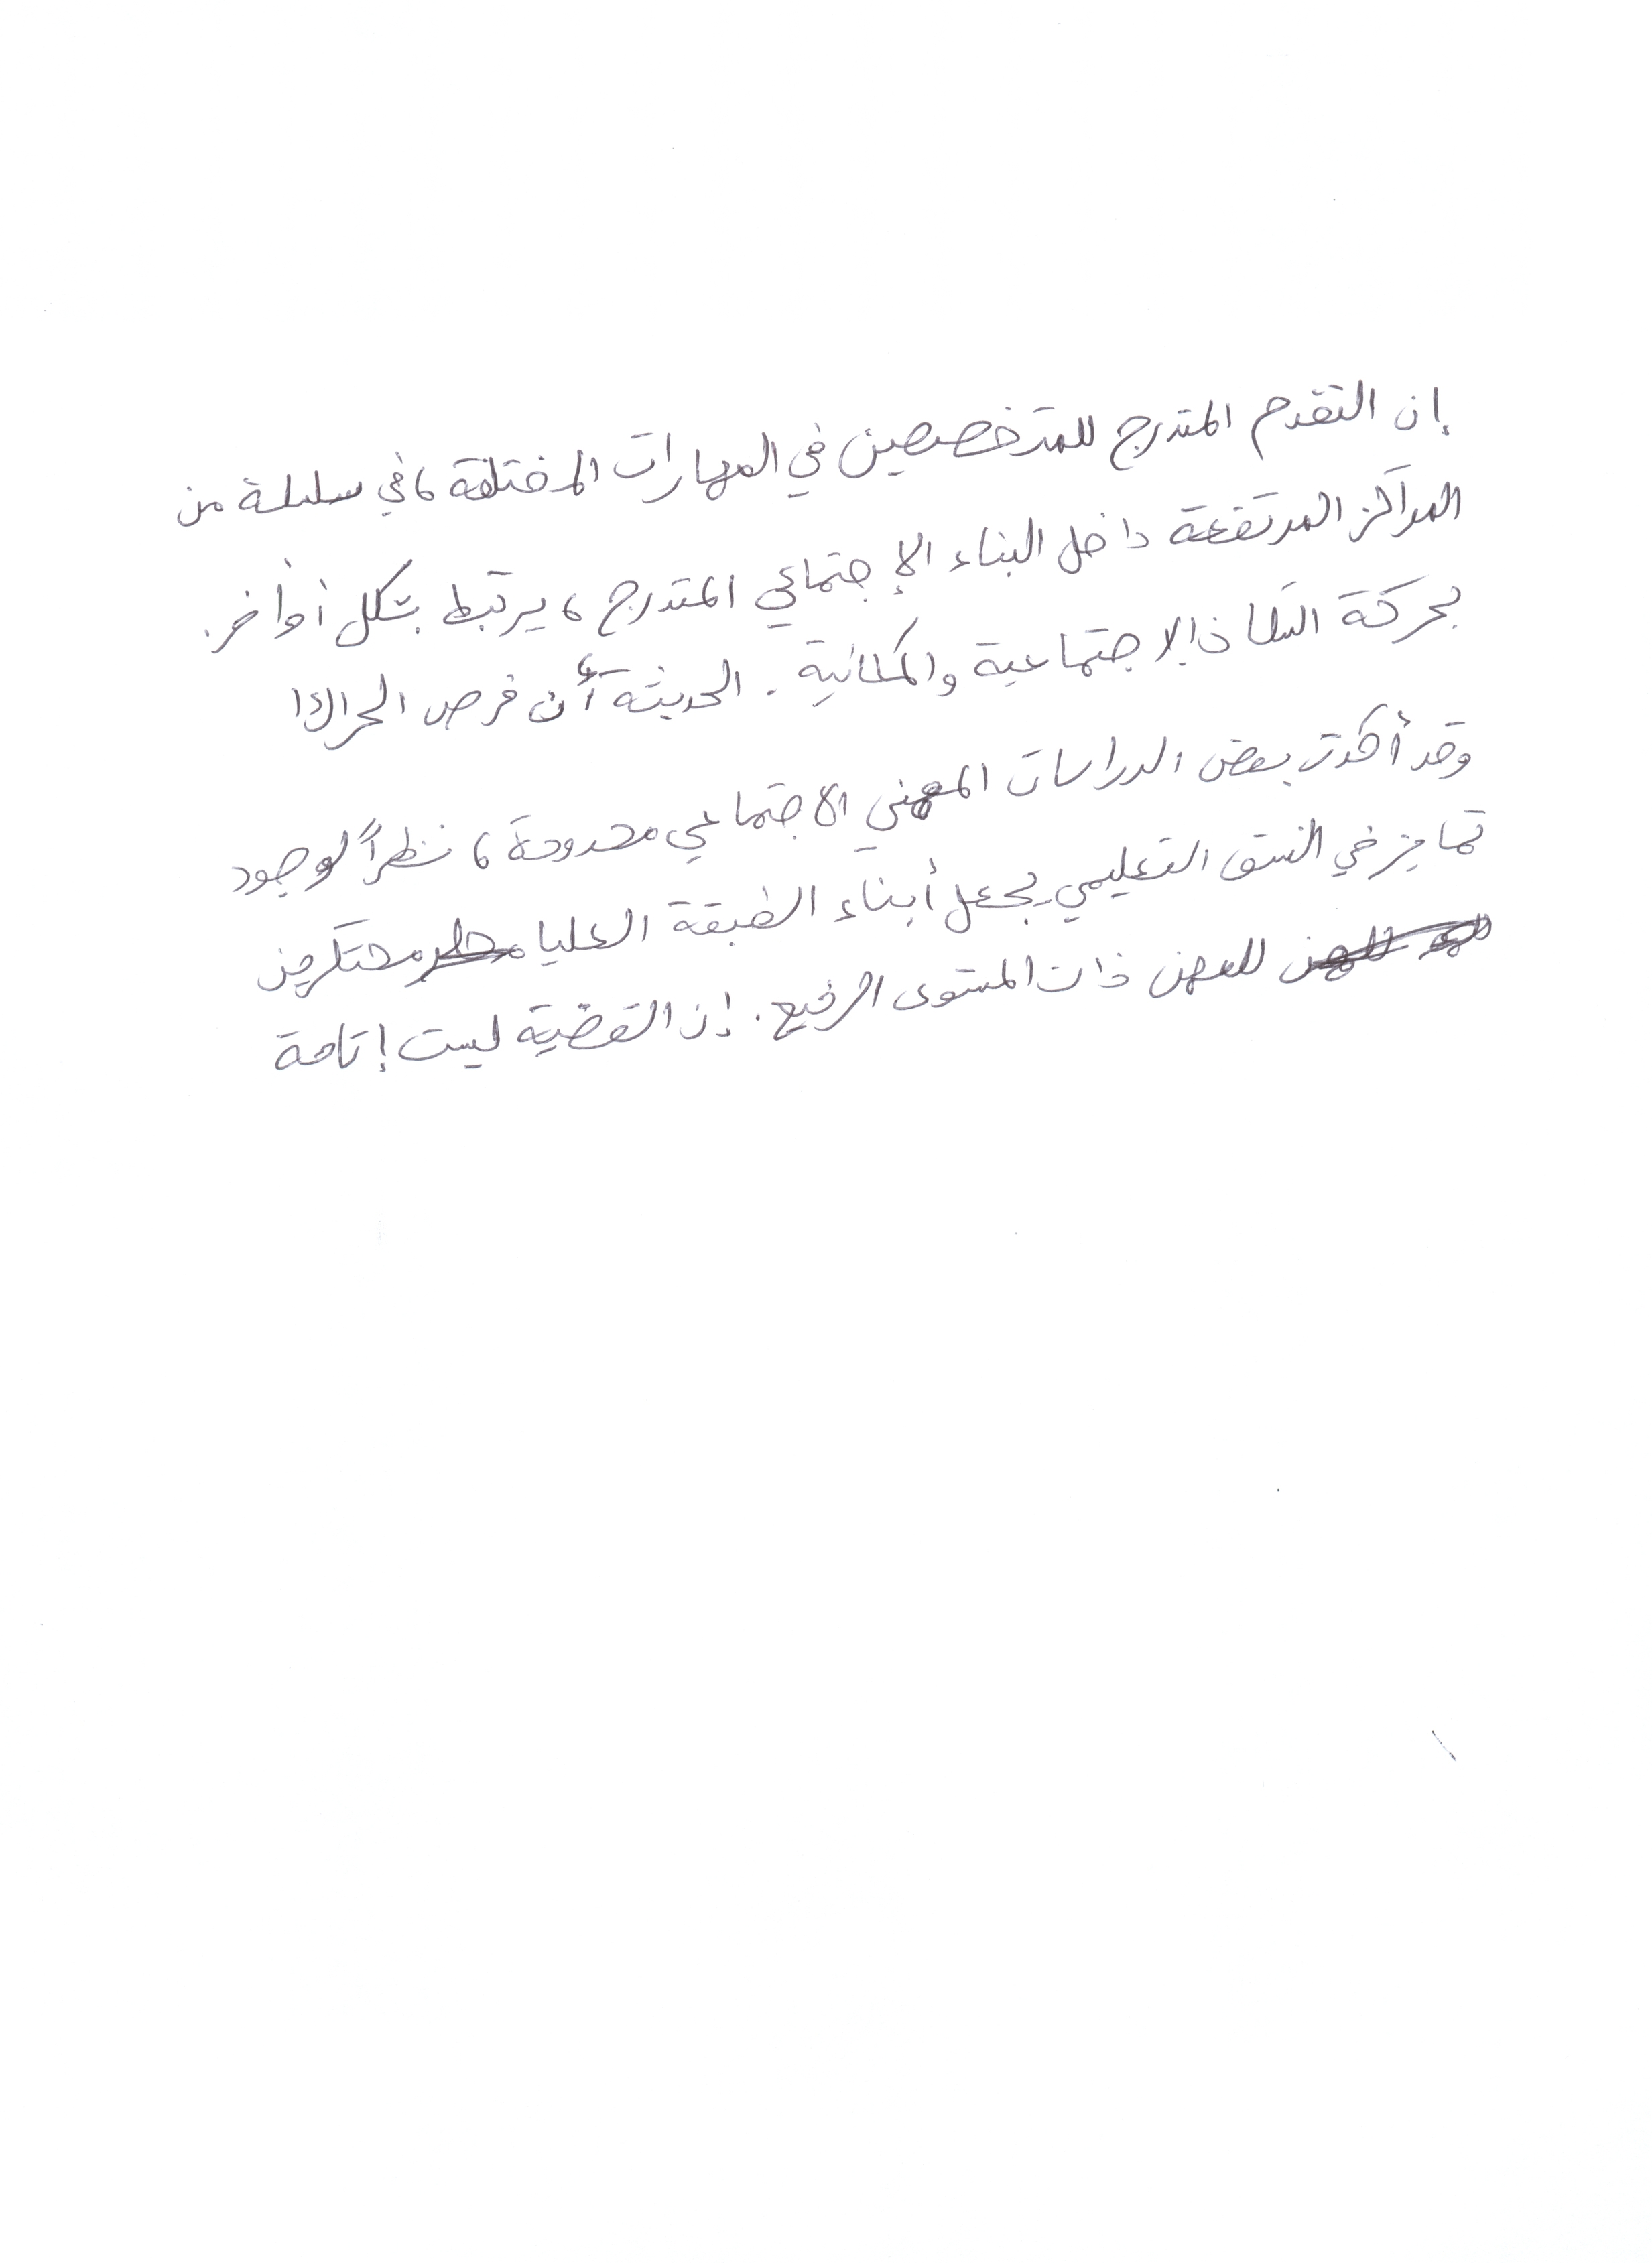 إن التقدم المتدرج للمتخصصين في المهارات المختلفة، في سلسلة من
المراكز المرتفعة داخل البناء الإجتماعي المتدرج، يرتبط بشكل أو أخر.
بحركة السكان الاجتماعية والمكانية. الحديثة، أن فرص الحراك ا
وقد أكدت بعض الدراسات المهني الاجتماعي محدودة، نظراً لوجود
تمايز في النسق التعليمي يجعل أبناء الطبقة العليا محتكرين
للمهن ذات المستوى الرفيع. إن القضية ليست إتاحة